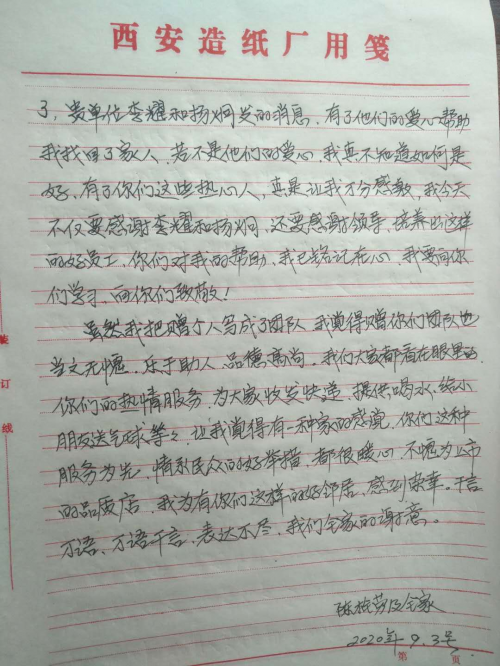 西安造纸厂用笺
了，贵单位李耀和扬炯发的消息，有了他们的爱心帮助
我找回了家人，若不是他们的爱心，我真不知道如何是
好，有了你们这些热心人，真是让我万分感激，我今天
不仅要感谢李耀和扬炯，还要感谢领导，培养出这样
的好员工，你们对我的帮助，我已铭记在心，我要向你
们学习，向你们致敬！
虽然我把赠个人写成了团队，我觉得赠你们团队也
当之无愧，乐于助人，品德高尚，我们大家都看在眼里的，
你们的热情服务，为大家收发快递，提供喝水，给小
朋友送气球等々，让我觉得有一种家的感觉，你们这种
服务为先，情系民众的好举措，都很暖心，不愧为上市
的品质店，我为有你们这样的好邻居，感到荣幸。千言
万语，万语千言，表达不尽，我们全家的谢意。
及全家
2020年.9.3号
装
订
线
第 页